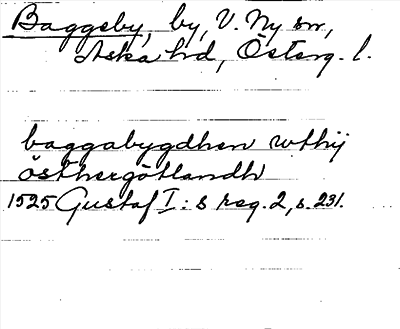 Baggeby, by, V. Ny sn,
Aska hd, Österg. l.
baggabygdhen wthij
östhergötlandh
1525 Gustaf I:s reg. 2, s. 231.